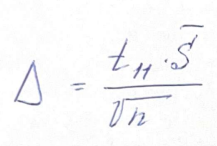 Δ = \frac{t_н · \bar{S}}{\sqrt{n}}